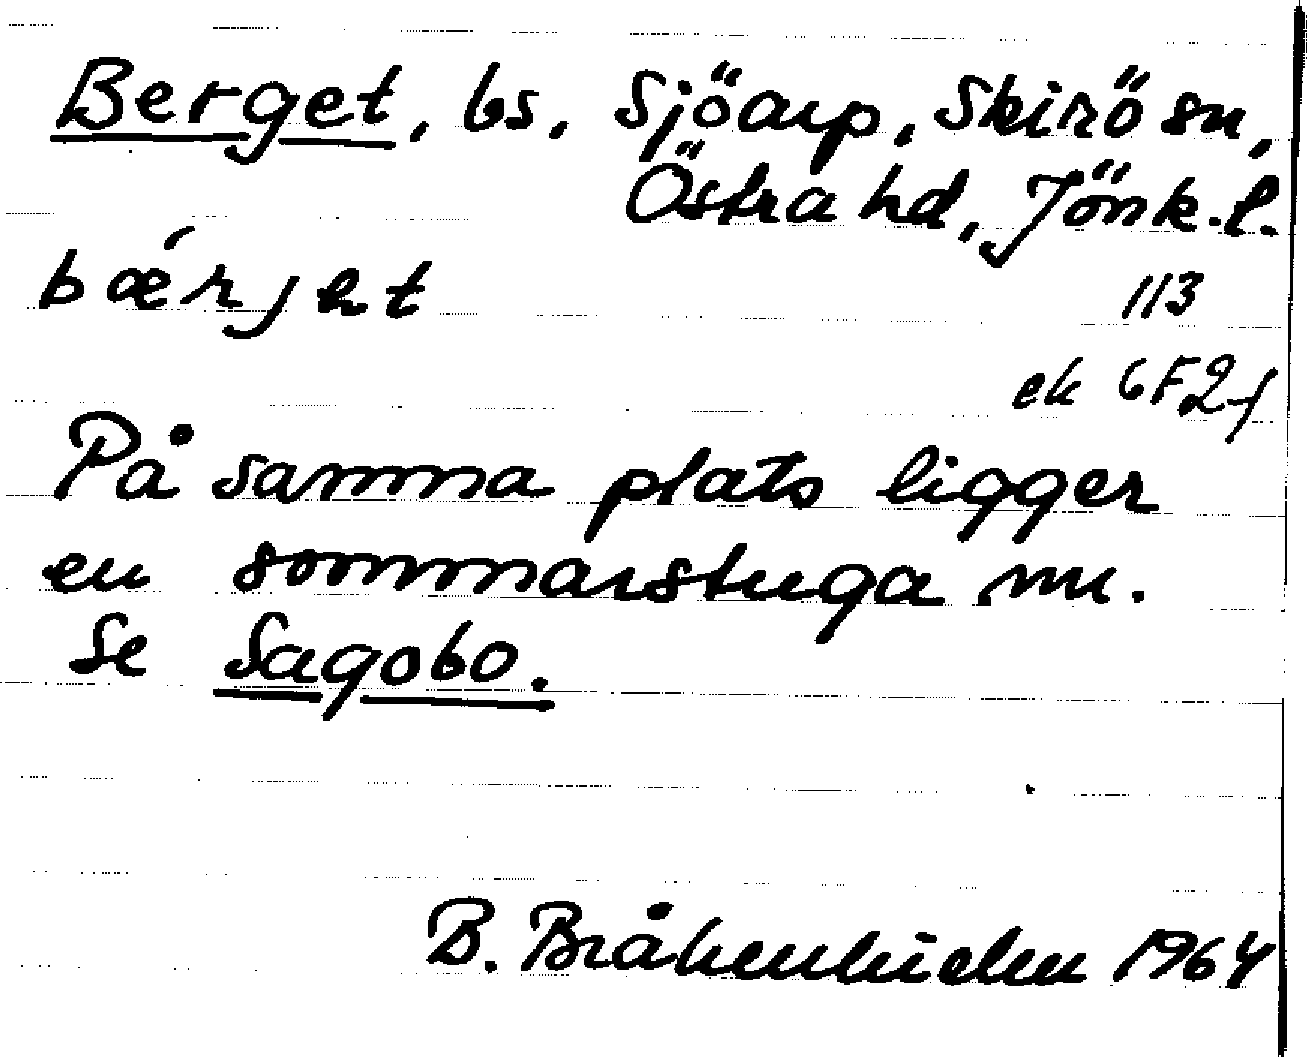 Berget, bs. Sjöarp, Skirö sn,
Östra hd, Jönk. l.
bærjet
113
ek 6F2f
På samma plats ligger
en sommarstuga nu.
Se Sagobo.
B. 1964